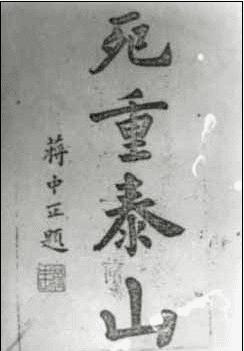 死重泰山
蔣中正題